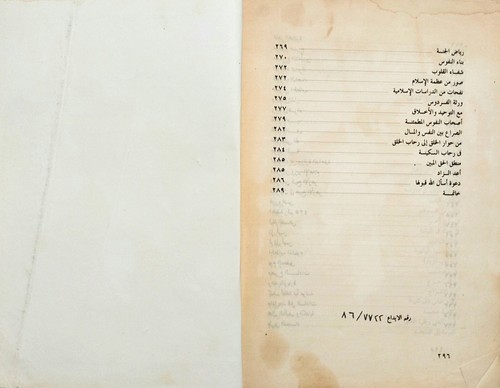 رياض الجنة ٢٦٩
بناء النفوس ٢٧٠
شفاء القلوب ٢٧٢
صور من عظمة الإسلام ٢٧٢
نفحات من الدراسات الإسلامية ٢٧٤
ورثة الفردوس ٢٧٥
مع التوحيد والأخلاق ٢٧٧
أصحاب النفوس المطمئنة ٢٧٩
الصراع بين النفس والمال ٢٨٢
من حوار الخلق إلى رحاب الخالق ٢٨٣
في رحاب السكينة ٢٨٤
منطق الحق المبين ٢٨٥
أعد الزاد ٢٨٥
دعوة أسأل الله قبولها ٢٨٦
خاتمة ٢٨٩
رقم الايداع ٧٧٢٢ / ٨٦
٢٩٦